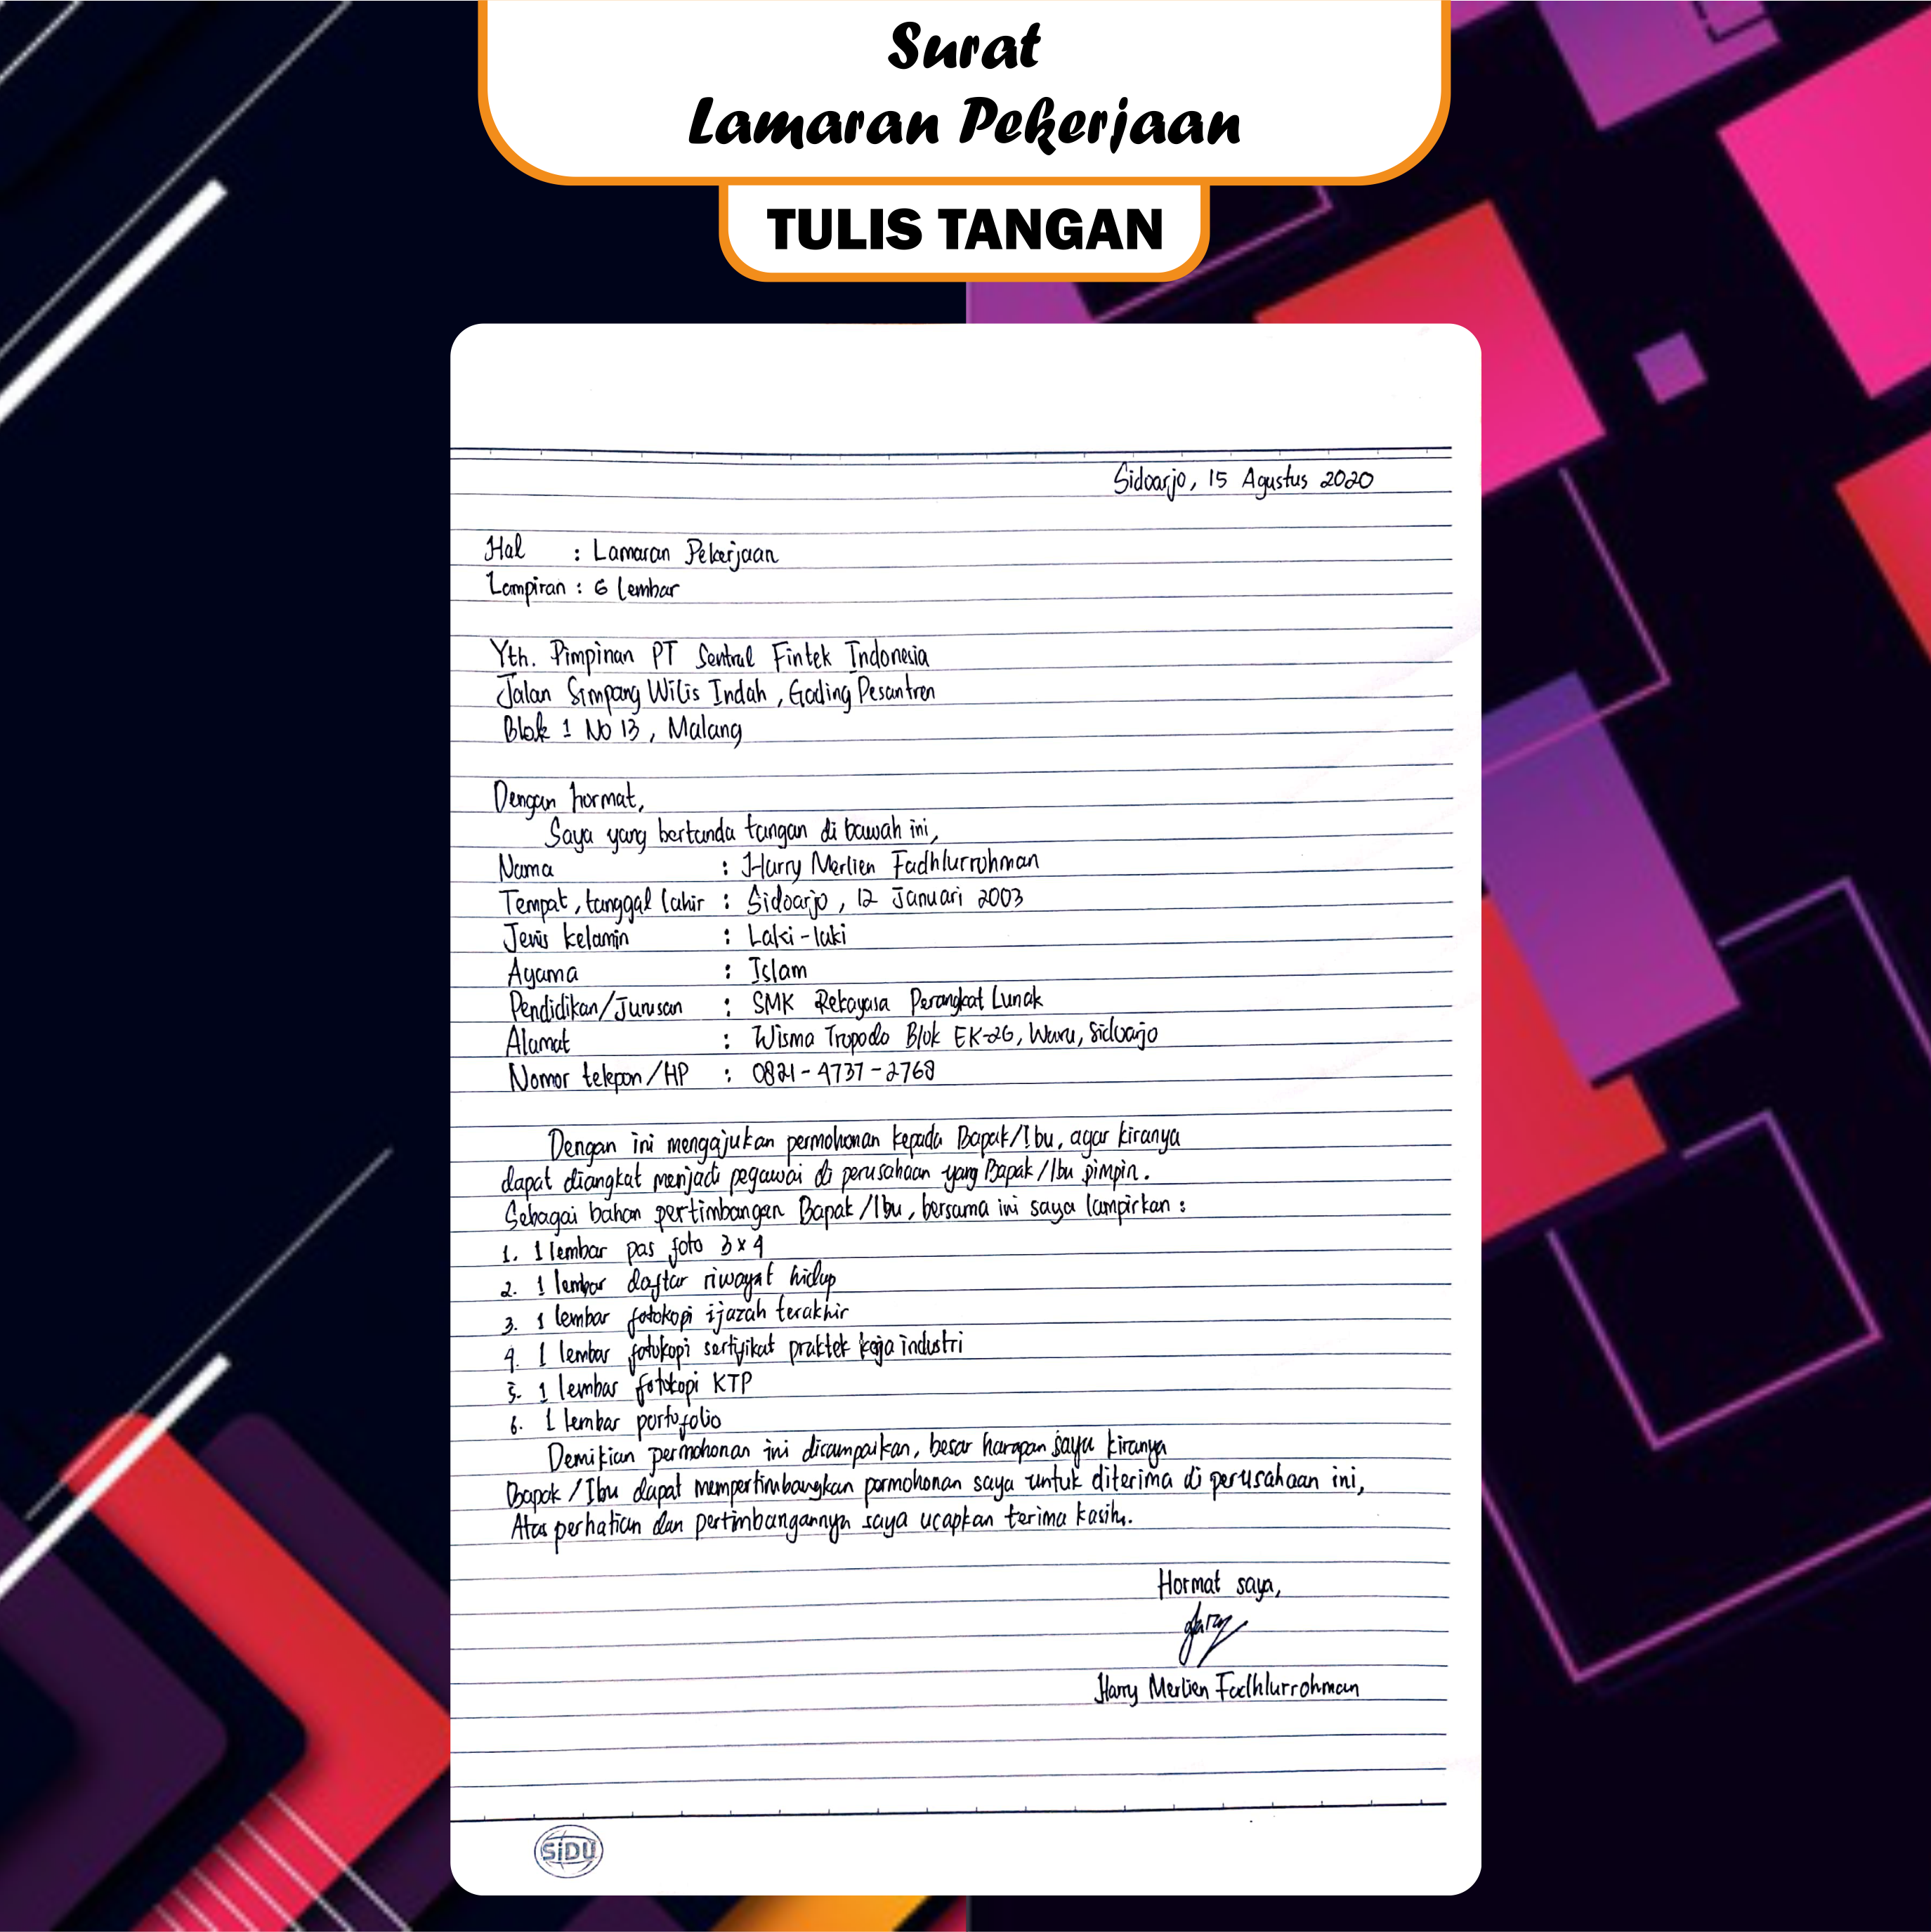 Surat
Lamaran Pekerjaan
TULIS TANGAN
Sidoarjo, 15 Agustus 2020
Hal : Lamaran Pekerjaan
Lampiran : 6 lembar
Yth. Pimpinan PT Sentral Fintek Indonesia
Jalan Simpang Wilis Indah, Gading Pesantren
Blok 1 No 13, Malang
Dengan hormat,
Saya yang bertanda tangan di bawah ini,
Nama : Harry Merlien Fadhlurrohman
Tempat, tanggal lahir : Sidoarjo, 12 Januari 2003
Jenis kelamin : Laki-laki
Agama : Islam
Pendidikan/Jurusan : SMK Rekayasa Perangkat Lunak
Alamat : Wisma Tropodo Blok EK-26, Waru, Sidoarjo
Nomor telepon/HP : 0821-4737-2768
Dengan ini mengajukan permohonan kepada Bapak/Ibu, agar kiranya
dapat diangkat menjadi pegawai di perusahaan yang Bapak/Ibu pimpin.
Sebagai bahan pertimbangan Bapak/Ibu, bersama ini saya lampirkan :
1. 1 lembar pas foto 3x4
2. 1 lembar daftar riwayat hidup
3. 1 lembar fotokopi ijazah terakhir
4. 1 lembar fotokopi sertifikat praktek kerja industri
5. 1 lembar fotokopi KTP
6. 1 lembar portofolio
Demikian permohonan ini disampaikan, besar harapan saya kiranya
Bapak/Ibu dapat mempertimbangkan permohonan saya untuk diterima di perusahaan ini,
Atas perhatian dan pertimbangannya saya ucapkan terima kasih.
Hormat saya,
Harry
Harry Merlien Fadhlurrohman
SiDU